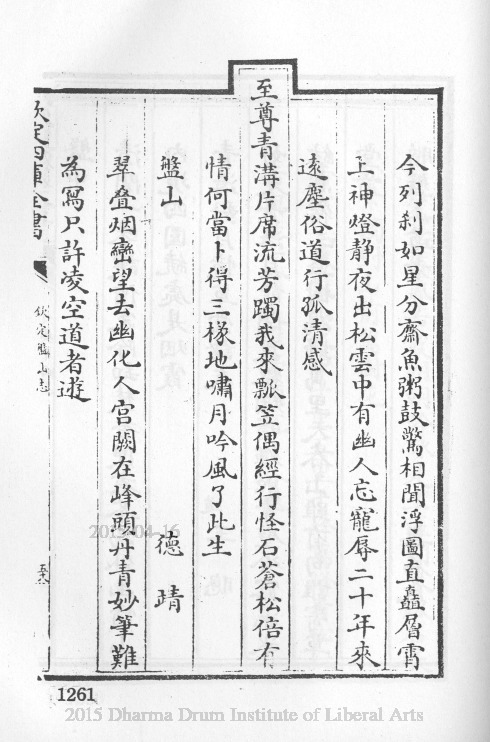 今列刹如星分齋魚粥鼓驚相聞浮圖直矗層霄
上神燈静夜出松雲中有幽人忘寵辱二十年來
遠塵俗道行孤清感
至尊青溝片席流芳躅我來瓢笠偶經行怪石蒼松倍有
情何當卜得三椽地嘯月吟風了此生
盤山 德靖
翠叠烟巒望去幽化人宫闕在峰頭丹青妙筆難
為寫只許凌空道者遊
欽定四庫全書
欽定盤山志
1261
2015 Dharma Drum Institute of Liberal Arts